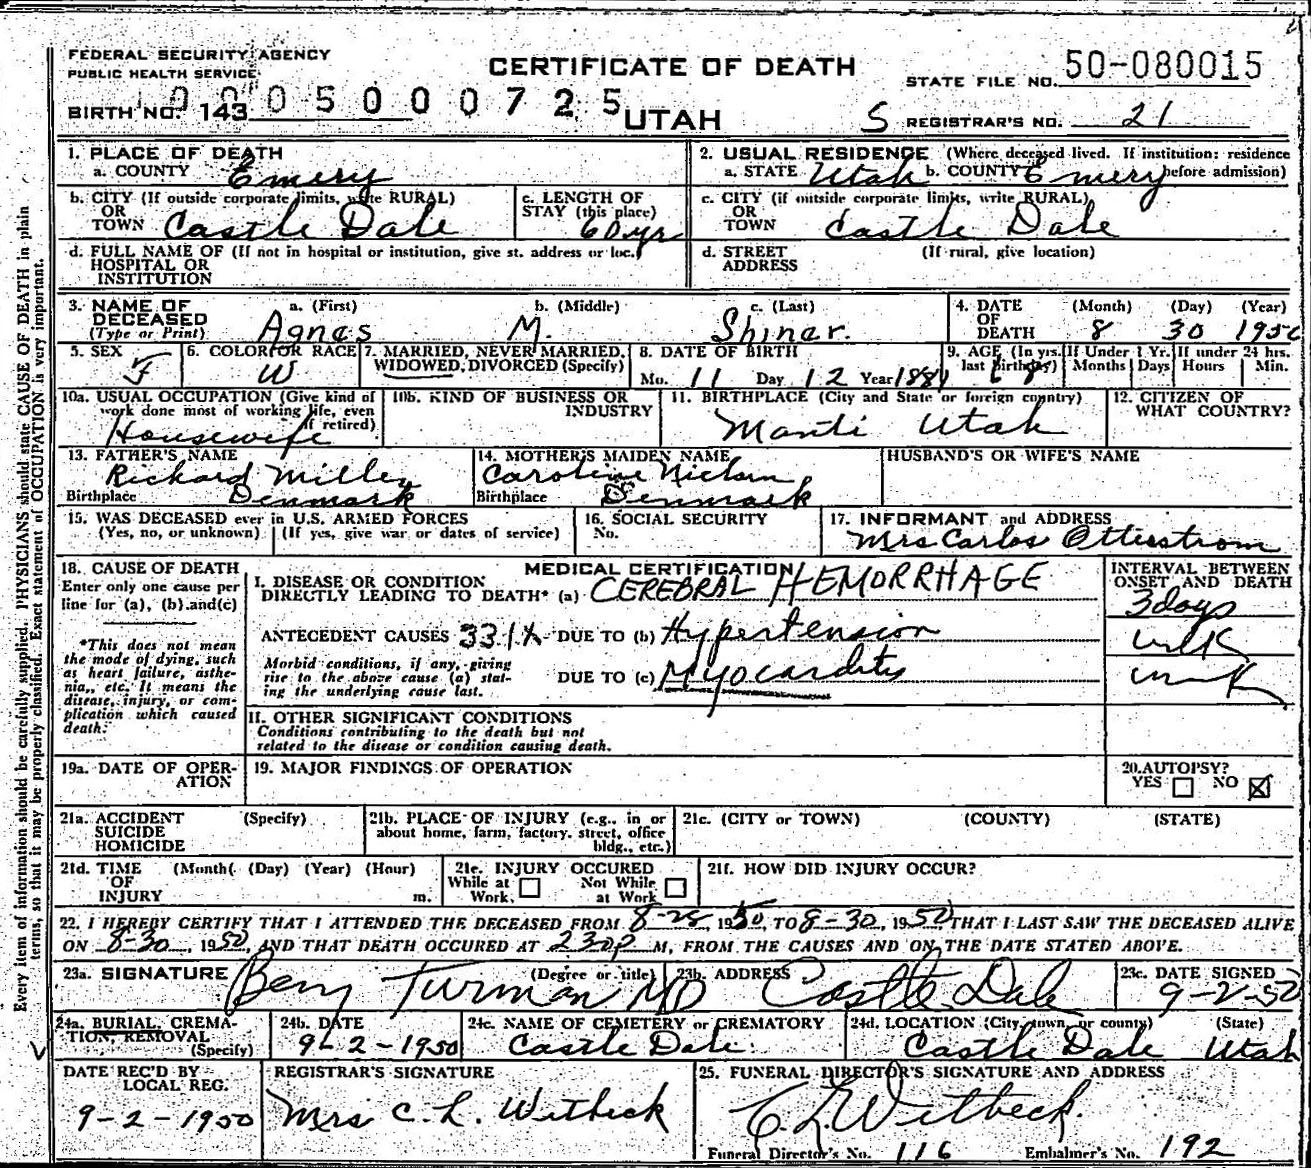 FEDERAL SECURITY AGENCY
PUBLIC HEALTH SERVICE
CERTIFICATE OF DEATH
STATE FILE NO. 50-080015
BIRTH NO. 143 0005000725
UTAH
S REGISTRAR'S NO. 21
1. PLACE OF DEATH
a. COUNTY Emery
2. USUAL RESIDENCE (Where deceased lived. If institution: residence before admission)
a. STATE Utah b. COUNTY Emery
b. CITY (If outside corporate limits, write RURAL) OR TOWN Castle Dale
c. LENGTH OF STAY (this place) 60 yr
c. CITY (if outside corporate limits, write RURAL) OR TOWN Castle Dale
d. FULL NAME OF (If not in hospital or institution, give st. address or loc.) HOSPITAL OR INSTITUTION
d. STREET ADDRESS (If rural, give location)
3. NAME OF DECEASED (Type or Print) a. (First) b. (Middle) c. (Last)
Agnes M. Shiner.
4. DATE OF DEATH (Month) (Day) (Year)
8 30 1950
5. SEX F
6. COLOR OR RACE W
7. MARRIED, NEVER MARRIED, WIDOWED, DIVORCED (Specify)
8. DATE OF BIRTH
Mo. 11 Day 12 Year 1881
9. AGE (In yrs. last birthday) 68 If Under 1 Yr. Months Days If under 24 hrs. Hours Min.
10a. USUAL OCCUPATION (Give kind of work done most of working life, even if retired) Housewife
10b. KIND OF BUSINESS OR INDUSTRY
11. BIRTHPLACE (City and State or foreign country)
Manti Utah
12. CITIZEN OF WHAT COUNTRY?
13. FATHER'S NAME
Richard Miller
Birthplace Denmark
14. MOTHER'S MAIDEN NAME
Caroline Nielsen
Birthplace Denmark
HUSBAND'S OR WIFE'S NAME
15. WAS DECEASED ever in U.S. ARMED FORCES
(Yes, no, or unknown) (If yes, give war or dates of service)
16. SOCIAL SECURITY No.
17. INFORMANT and ADDRESS
Mrs Carlos Otterstrom
18. CAUSE OF DEATH
Enter only one cause per line for (a), (b) and (c)
*This does not mean the mode of dying, such as heart failure, asthenia, etc. It means the disease, injury, or complication which caused death.
MEDICAL CERTIFICATION
I. DISEASE OR CONDITION DIRECTLY LEADING TO DEATH* (a) CEREBRAL HEMORRHAGE
ANTECEDENT CAUSES 331X DUE TO (b) Hypertension
Morbid conditions, if any, giving rise to the above cause (a) stating the underlying cause last.
DUE TO (c) Myocarditis
INTERVAL BETWEEN ONSET AND DEATH
3 days
unk
unk
II. OTHER SIGNIFICANT CONDITIONS
Conditions contributing to the death but not related to the disease or condition causing death.
19a. DATE OF OPERATION
19. MAJOR FINDINGS OF OPERATION
20. AUTOPSY?
YES ☐ NO ☒
21a. ACCIDENT SUICIDE HOMICIDE (Specify)
21b. PLACE OF INJURY (e.g., in or about home, farm, factory, street, office bldg., etc.)
21c. (CITY or TOWN) (COUNTY) (STATE)
21d. TIME OF INJURY (Month( (Day) (Year) (Hour) m.
21e. INJURY OCCURED
While at Work ☐ Not While at Work ☐
21f. HOW DID INJURY OCCUR?
22. I HEREBY CERTIFY THAT I ATTENDED THE DECEASED FROM 8-28, 1950, TO 8-30, 1950, THAT I LAST SAW THE DECEASED ALIVE
ON 8-30, 1950, AND THAT DEATH OCCURED AT 230p M, FROM THE CAUSES AND ON THE DATE STATED ABOVE.
23a. SIGNATURE (Degree or title)
Turman MD
23b. ADDRESS
Castle Dale
23c. DATE SIGNED
9-2-50
24a. BURIAL, CREMATION, REMOVAL (Specify)
24b. DATE
9-2-1950
24c. NAME OF CEMETERY or CREMATORY
Castle Dale
24d. LOCATION (City, town, or county) (State)
Castle Dale Utah
DATE REC'D BY LOCAL REG.
9-2-1950
REGISTRAR'S SIGNATURE
Mrs C. L. Witbeck
25. FUNERAL DIRECTOR'S SIGNATURE AND ADDRESS
C L Witbeck.
Funeral Director's No. 116 Embalmer's No. 192
Every item of information should be carefully supplied. PHYSICIANS should state CAUSE OF DEATH in plain
terms, so that it may be properly classified. Exact statement of OCCUPATION is very important.